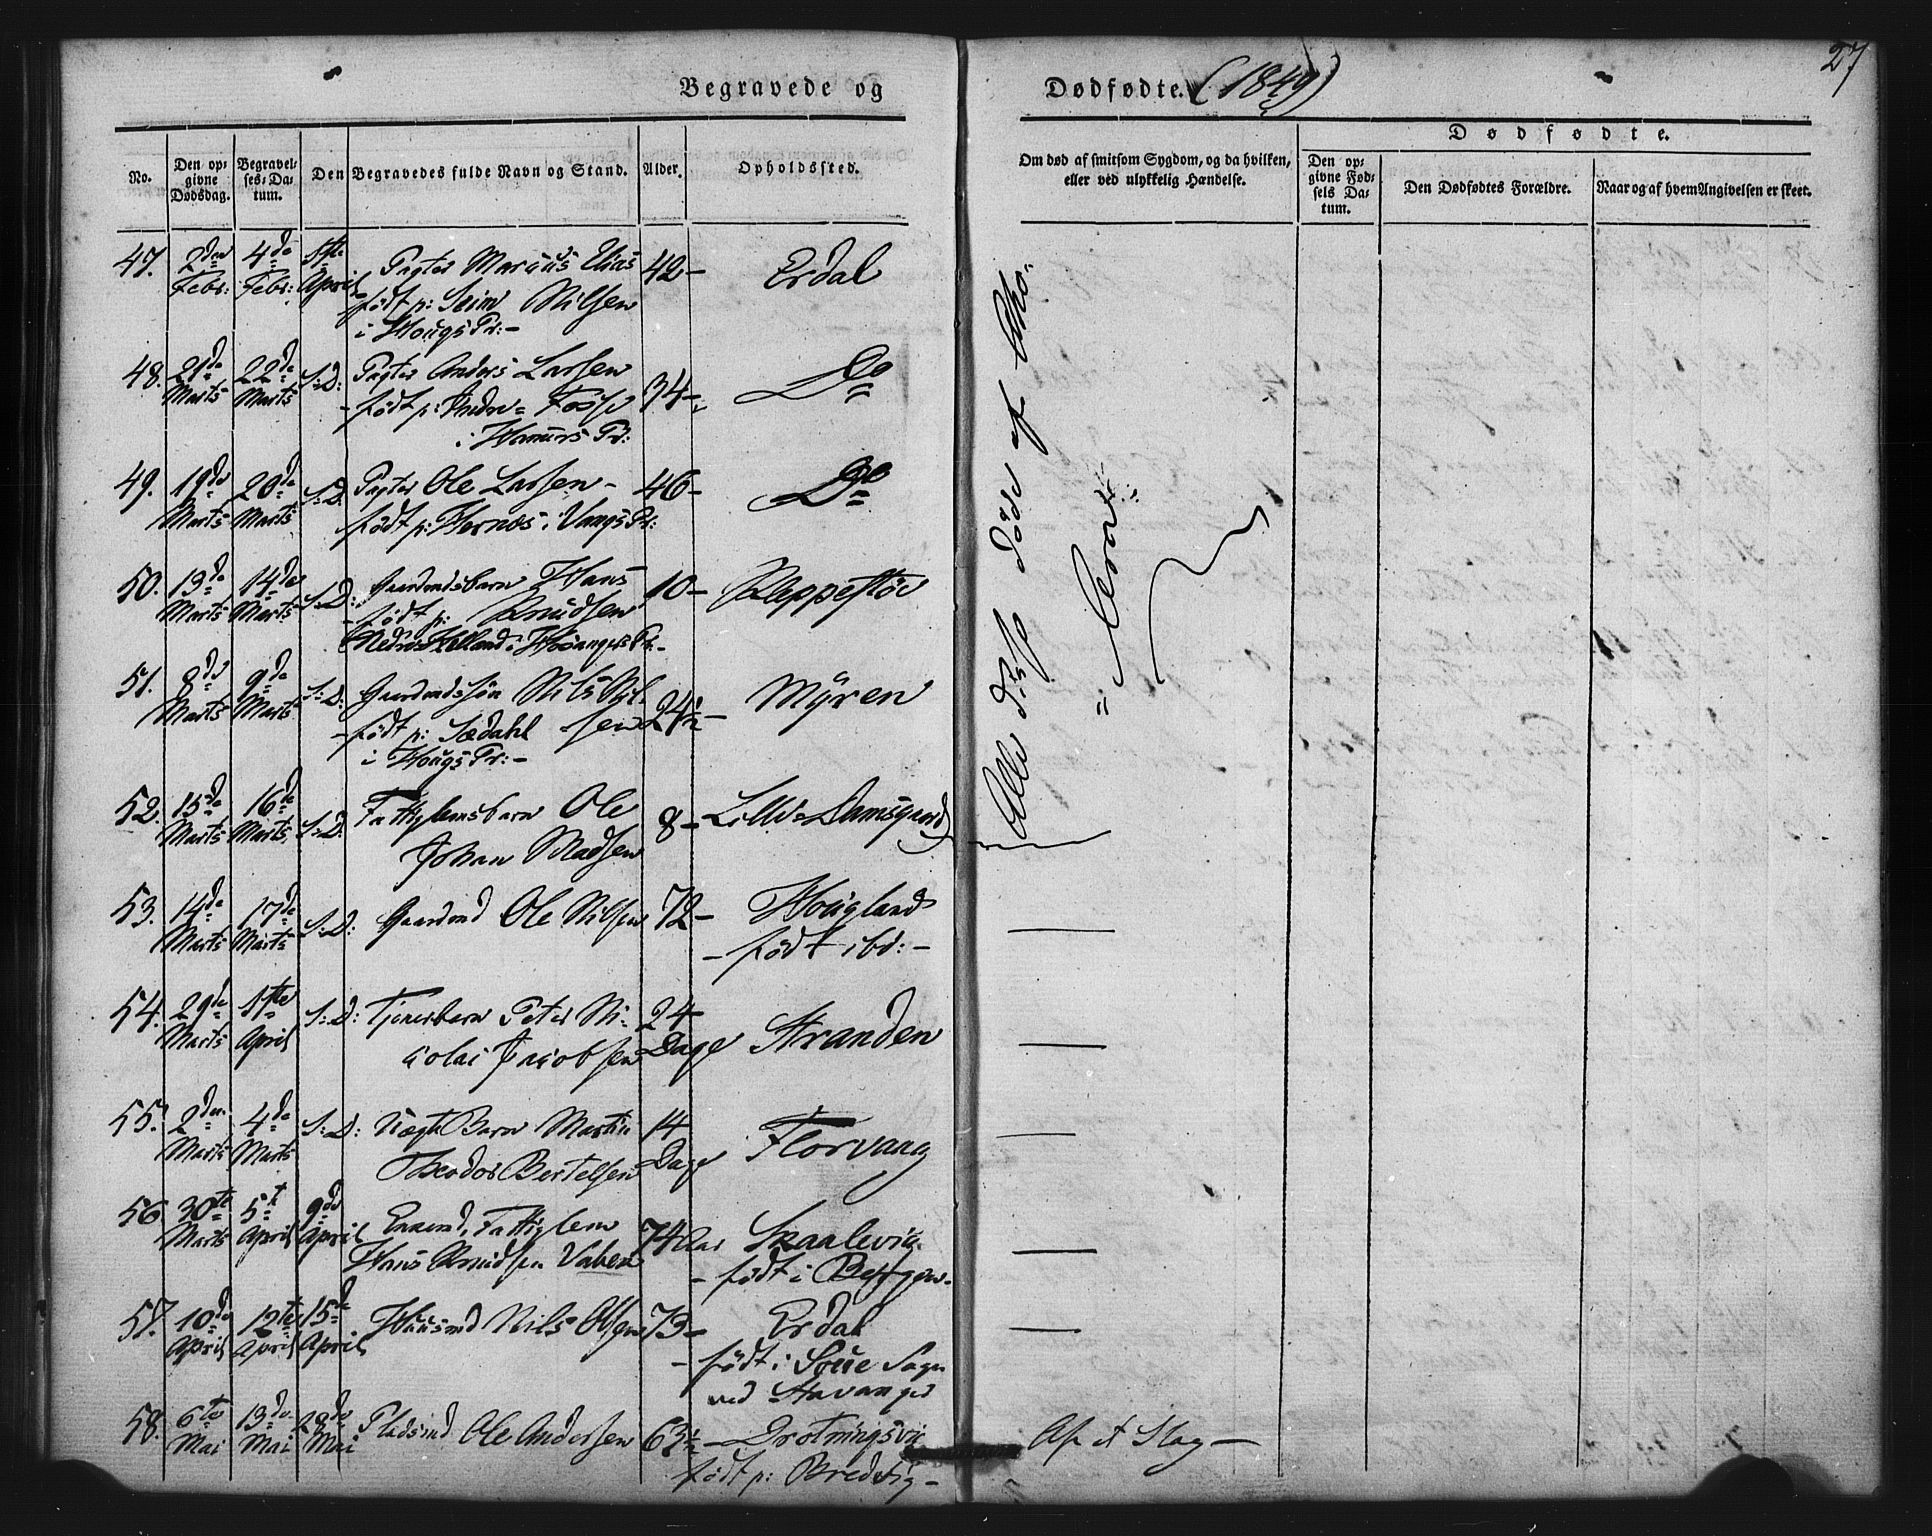 27
Begravede og
Dødfødte. (1849)
No.
Den opgivne Dødsdag.
Begravelses-Datum.
Den Begravedes fulde Navn og Stand.
Alder.
Opholdssted.
Om død af smitsom Sygdom, og da hvilken, eller ved ulykkelig Hændelse.
Dødfødte.
Den opgivne Fødsels Datum.
Den Dødfødtes Forældre.
Naar og af hvem Angivelsen er skeet.
47. 2den 4de 1ste Pagter Marius Elias 42- Erdal
Febr: Febr: April født p: Seim Nilsen
i Hougs Pr:-
48. 21de 22de S:D: Pagter Anders Larsen 34- Do
Marts Marts født p: Indre-Fosse
i Hammers Pr:
49. 19de 20de S:D: Pagter Ole Larsen- 46- Do
Marts Marts født p: Hernæs i Vangs Pr:
50. 13de 14de S:D: Gaardmdsbarn Hans 10- Kleppestöe
Marts Marts -født p: Knudsen
Nedre Helland i Hosangers Pr.-
51. 8de 9de S:D: Gaardmdssøn Nils Nil- 24½- Myren
Marts Marts -født p: Sædahl sen
i Hougs Pr:-
52. 15de 16de S:D: Fattiglemsbarn Ole 8- Lille-Damsgaard
Marts Marts Johan Madsen
Alle disse døde af Cho-
=lera=
53. 14de 17de S:D: Gaardmd Ole Nilsen 72- Hougland
Marts Marts -født ibd:-
54. 29de 1ste S:D: Tjenerbarn Peter Ni- 24 Stranden
Marts April colai Jacobsen Dage
55. 2den 4de S:D: Uægte Barn Martin 14 Florvaag
Marts Marts Theodor Bertelsen Dage
56 30te 5te 9de Enkemd, Fattiglem 74 Aar Skaalevig
Marts April April Hans Knudsen -født i Bergen-
57. 10de 12te 15de Huusmd Nils Olsen 73- Erdal
April April April -født i Sogn
ved Stavanger
58. 6te 13de 20de Pladsmd Ole Andersen 63½- Drotningsvig
Mai Mai Mai født p: Bredvig-
Af et Slag-